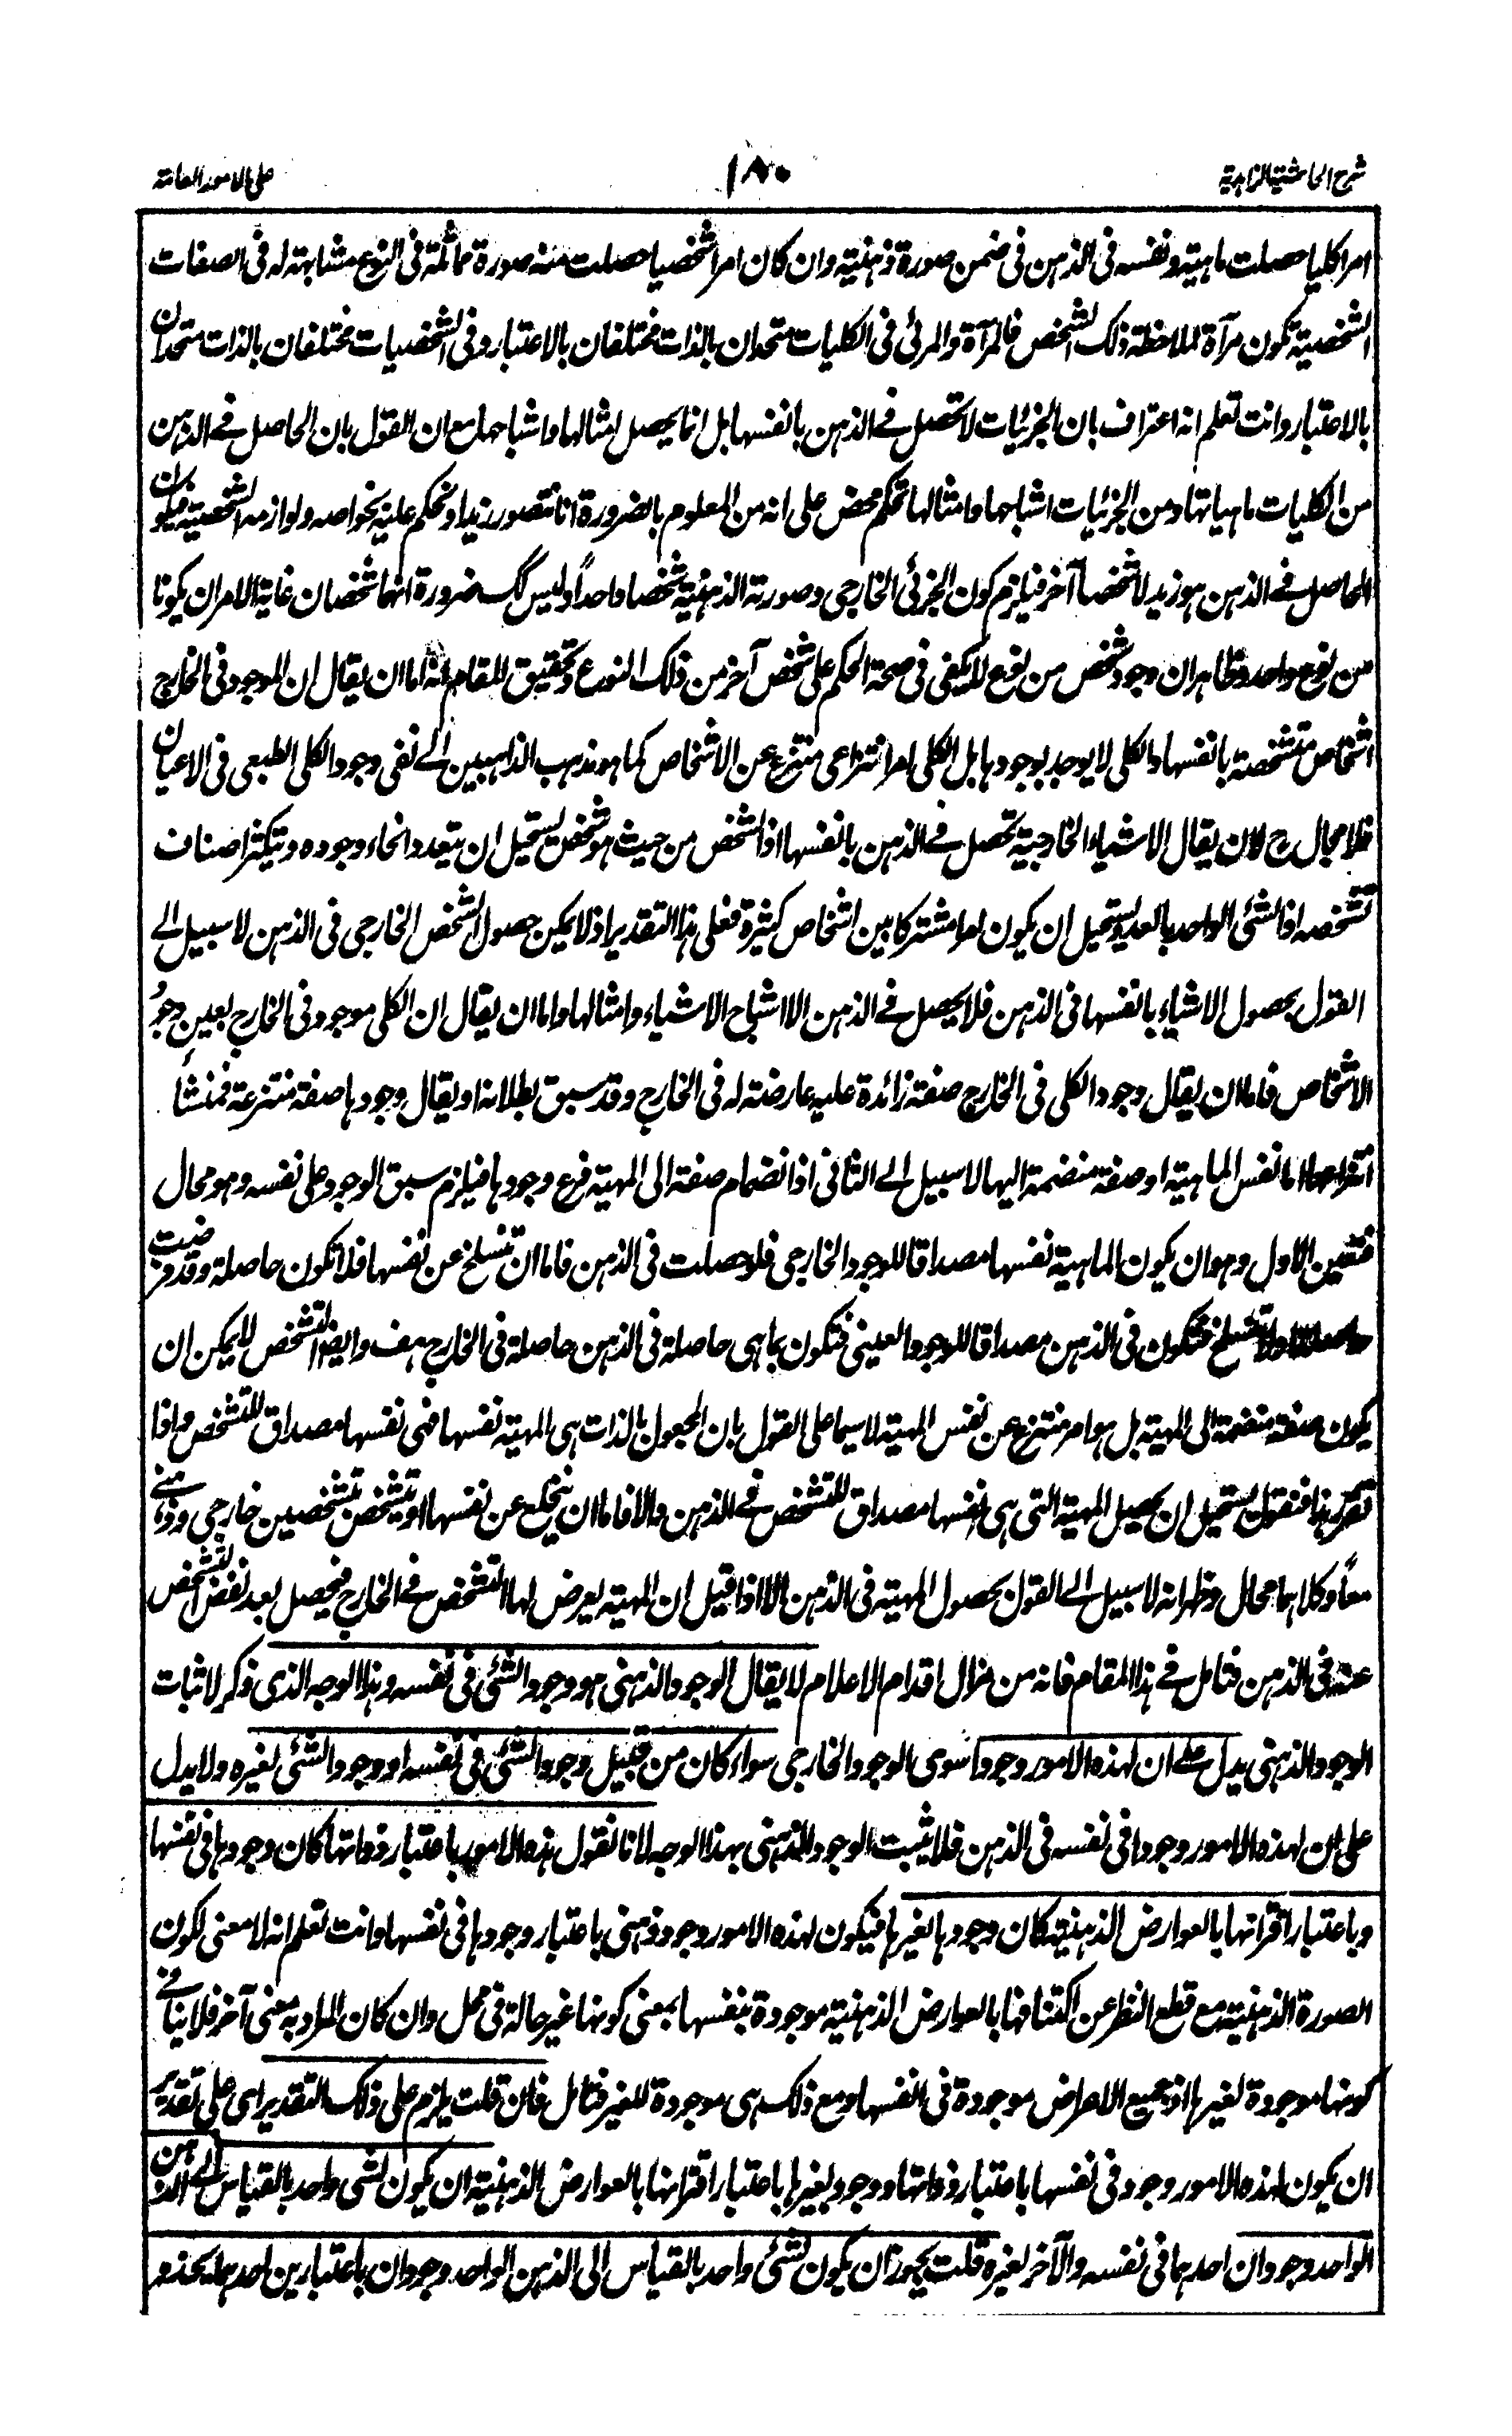 شرح الحاشية الزاهدية
١٨٠
على الامور العامة
امرا كليا حصلت ماهيته ونفسه فى الذهن فى ضمن صورة ذهنية وان كان امرا شخصيا حصلت منه صورة مماثلة فى النوع مشابهته له فى الصفات
الشخصية تكون مرآة لملاحظة ذلك الشخص فالمرآة والمرئى فى الكليات متحدان بالذات مختلفان بالاعتبار وفى الشخصيات مختلفان بالذات متحدان
بالاعتبار وانت تعلم انه اعتراف بان الجزئيات لا تحصل فى الذهن بانفسها بل انما يحصل امثالها واشباحها مع ان القول بان الحاصل فى الذهن
من الكليات ماهياتها ومن الجزئيات اشباحها وامثالها تحكم محض على انه من المعلوم بالضرورة انا نتصور زيدا ونحكم عليه بخواصه ولوازمه الشخصية فيكون
الحاصل فى الذهن هو زيد لا شخصاً آخر فيلزم كون الجزئى الخارجى وصورته الذهنية شخصا واحداً وليس كك ضرورة انهما شخصان غاية الامر ان يكونا
من نوع واحد وظاهر ان وجود شخص من نوع لا يكفى فى صحة الحكم على شخص آخر من ذلك النوع وتحقيق المقام انه اما ان يقال ان الموجود فى الخارج
اشخاص متشخصة بانفسها والكلى لا يوجد بوجودها بل الكلى امر انتزاعى منتزع عن الاشخاص كما هو مذهب الذاهبين الى نفى وجود الكلى الطبعى فى الاعيان
فلا مجال ح لان يقال الاشياء الخارجية تحصل فى الذهن بانفسها اذ الشخص من حيث هو شخص يستحيل ان يتعدد انحاء وجوده ويتكثر اصناف
تشخصه اذ الشئ الواحد بالعدد يستحيل ان يكون امرا مشتركا بين اشخاص كثيرة فعلى هذا التقدير اذ لا يمكن حصول الشخص الخارجى فى الذهن لا سبيل الى
القول بحصول الاشياء بانفسها فى الذهن فلا يحصل فى الذهن الا اشباح الاشياء وامثالها واما ان يقال ان الكلى موجود فى الخارج بعين وجود
الاشخاص فاما ان يقال وجود الكلى فى الخارج صفة زائدة عليه عارضة له فى الخارج وقد سبق بطلانه او يقال وجودها صفة منتزعة فمنشأ
انتزاعها اما نفس الماهية او صفة منضمة اليها لا سبيل الى الثانى اذ انضمام صفة الى المهية فرع وجودها فيلزم سبق الوجود على نفسه وهو محال
فتعين الاول وهو ان يكون الماهية نفسها مصداقا للوجود الخارجى فلو حصلت فى الذهن فاما ان تنسلخ عن نفسها فلا تكون حاصلة وقد فرضت
حاصلة او لا تنسلخ فتكون فى الذهن مصداقا للوجود العينى فتكون بما هى حاصلة فى الذهن حاصلة فى الخارج هف وايض التشخص لا يمكن ان
يكون صفة منضمة الى المهية بل هو امر منتزع عن نفس المهية لا سيما على القول بان المجعول بالذات هى المهية نفسها فهى نفسها مصداق للتشخص واذا
تقرر هذا فنقول يستحيل ان يحصل المهية التى هى نفسها مصداق للتشخص فى الذهن والا فاما ان ينخلع عن نفسها او تتشخص بتشخصين خارجى وذهنى
معاً وكلاهما محال وظهر انه لا سبيل الى القول بحصول المهية فى الذهن الا اذا قيل ان المهية يعرض لها التشخص فى الخارج فيحصل بعد نفض التشخص
عنه فى الذهن فتامل فى هذا المقام فانه من مزال اقدام الاعلام لا يقال الوجود الذهنى هو وجود الشئ فى نفسه وهذا الوجه الذى ذكر لاثبات
الوجود الذهنى يدل على ان لهذه الامور وجودا سوى الوجود الخارجى سواء كان من قبيل وجود الشئ فى نفسه او وجود الشئ لغيره ولا يدل
على ان لهذه الامور وجودا فى نفسه فى الذهن فلا يثبت الوجود الذهنى بهذا الوجه لانا نقول هذه الامور باعتبار ذواتها كان وجودها فى نفسها
وباعتبار اقترانها بالعوارض الذهنية كان وجودها لغيرها فيكون لهذه الامور وجود ذهنى باعتبار وجودها فى نفسها وانت تعلم انه لا معنى لكون
الصورة الذهنية مع قطع النظر عن اكتنافها بالعوارض الذهنية موجودة بنفسها بمعنى كونها غير حالة فى محل وان كان المراد به معنى آخر فلا ينافى
كونها موجودة لغيرها اذ جميع الاعراض موجودة فى انفسها ومع ذلك هى موجودة للغير فتامل فان قلت يلزم على ذلك التقدير اى على تقدير
ان يكون لهذه الامور وجود فى نفسها باعتبار ذواتها ووجود لغيرها باعتبار اقترانها بالعوارض الذهنية ان يكون لشئ واحد بالقياس الى الذهن
الواحد وجودان احدهما فى نفسه والآخر لغيره قلت يجوز ان يكون لشئ واحد بالقياس الى الذهن الواحد وجودان باعتبارين احدهما